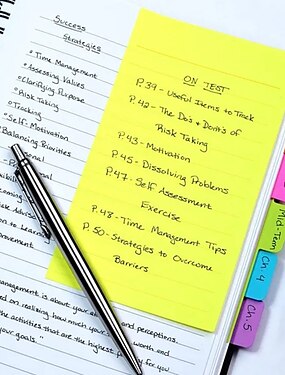 Success
Strategies
Time Management
Assessing Values
Clarifying Purpose
Risk Taking
Tracking
Self-Motivation
Balancing Priorities
ON TEST
P.39 - Useful Items to Track
P.42 - The Do's & Dont's of
Risk Taking
P.43 - Motivation
P.45 - Dissolving Problems
P.47 - Self Assessment
Exercise
P.48 - Time Management Tips
P.50 - Strategies to Overcome
Barriers
Mid-Term
Ch. 4
Ch. 5
management is about your
and perceptions.
on realizing how much your
worth and
the activities that are the highest
for you
your goals."